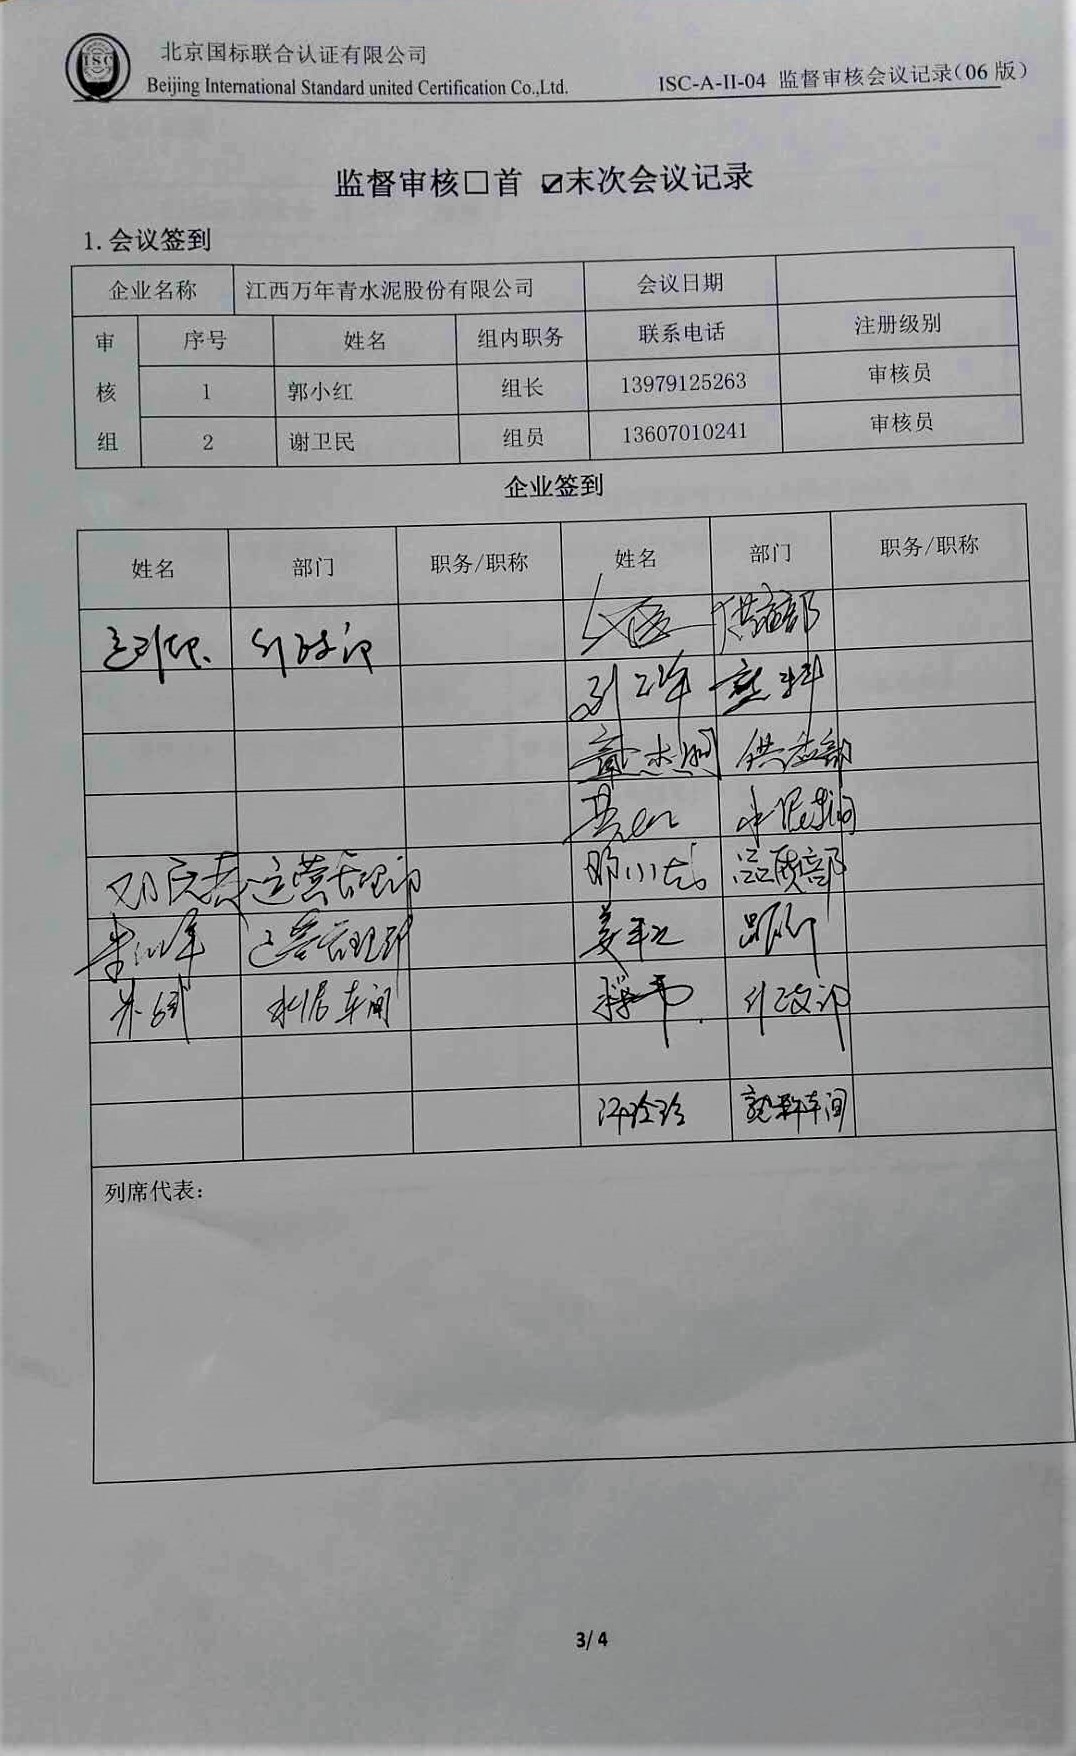 ISC
北京国标联合认证有限公司
Beijing International Standard united Certification Co.,Ltd.
ISC-A-II-04 监督审核会议记录(06 版)
监督审核□首 ☑末次会议记录
1. 会议签到
企业名称 江西万年青水泥股份有限公司 会议日期
审核组 序号 姓名 组内职务 联系电话 注册级别
1 郭小红 组长 13979125263 审核员
2 谢卫民 组员 13607010241 审核员
企业签到
姓名 部门 职务/职称 姓名 部门 职务/职称
行政部 供应部
熟料
供应部
水泥车间
运营管理部 品质部
运营管理部 姜平
水泥车间 行政部
玲玲 熟料车间
列席代表：
3/ 4